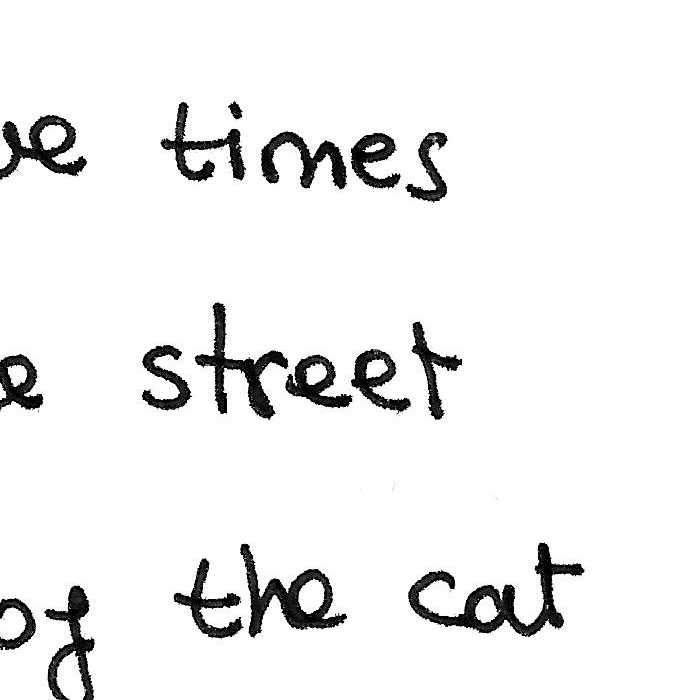 times
street
of the cat